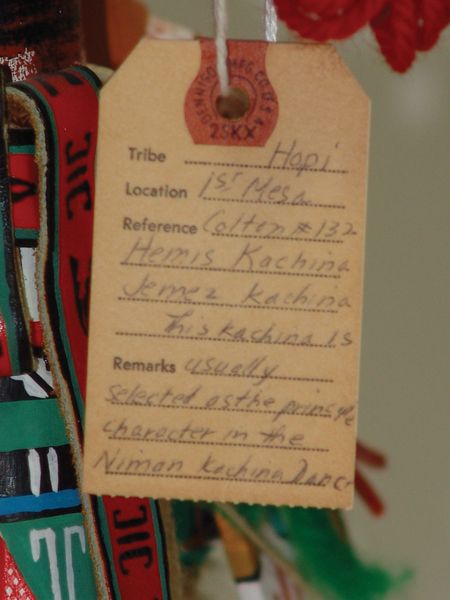 DENNISON MFG. CO. U.S.A.
25KX
Tribe Hopi
Location 1ST Mesa
Reference Colton # 132
Hemis Kachina
Jemez Kachina
This kachina is
Remarks usually
selected as the principle
character in the
Niman Kachina Dance